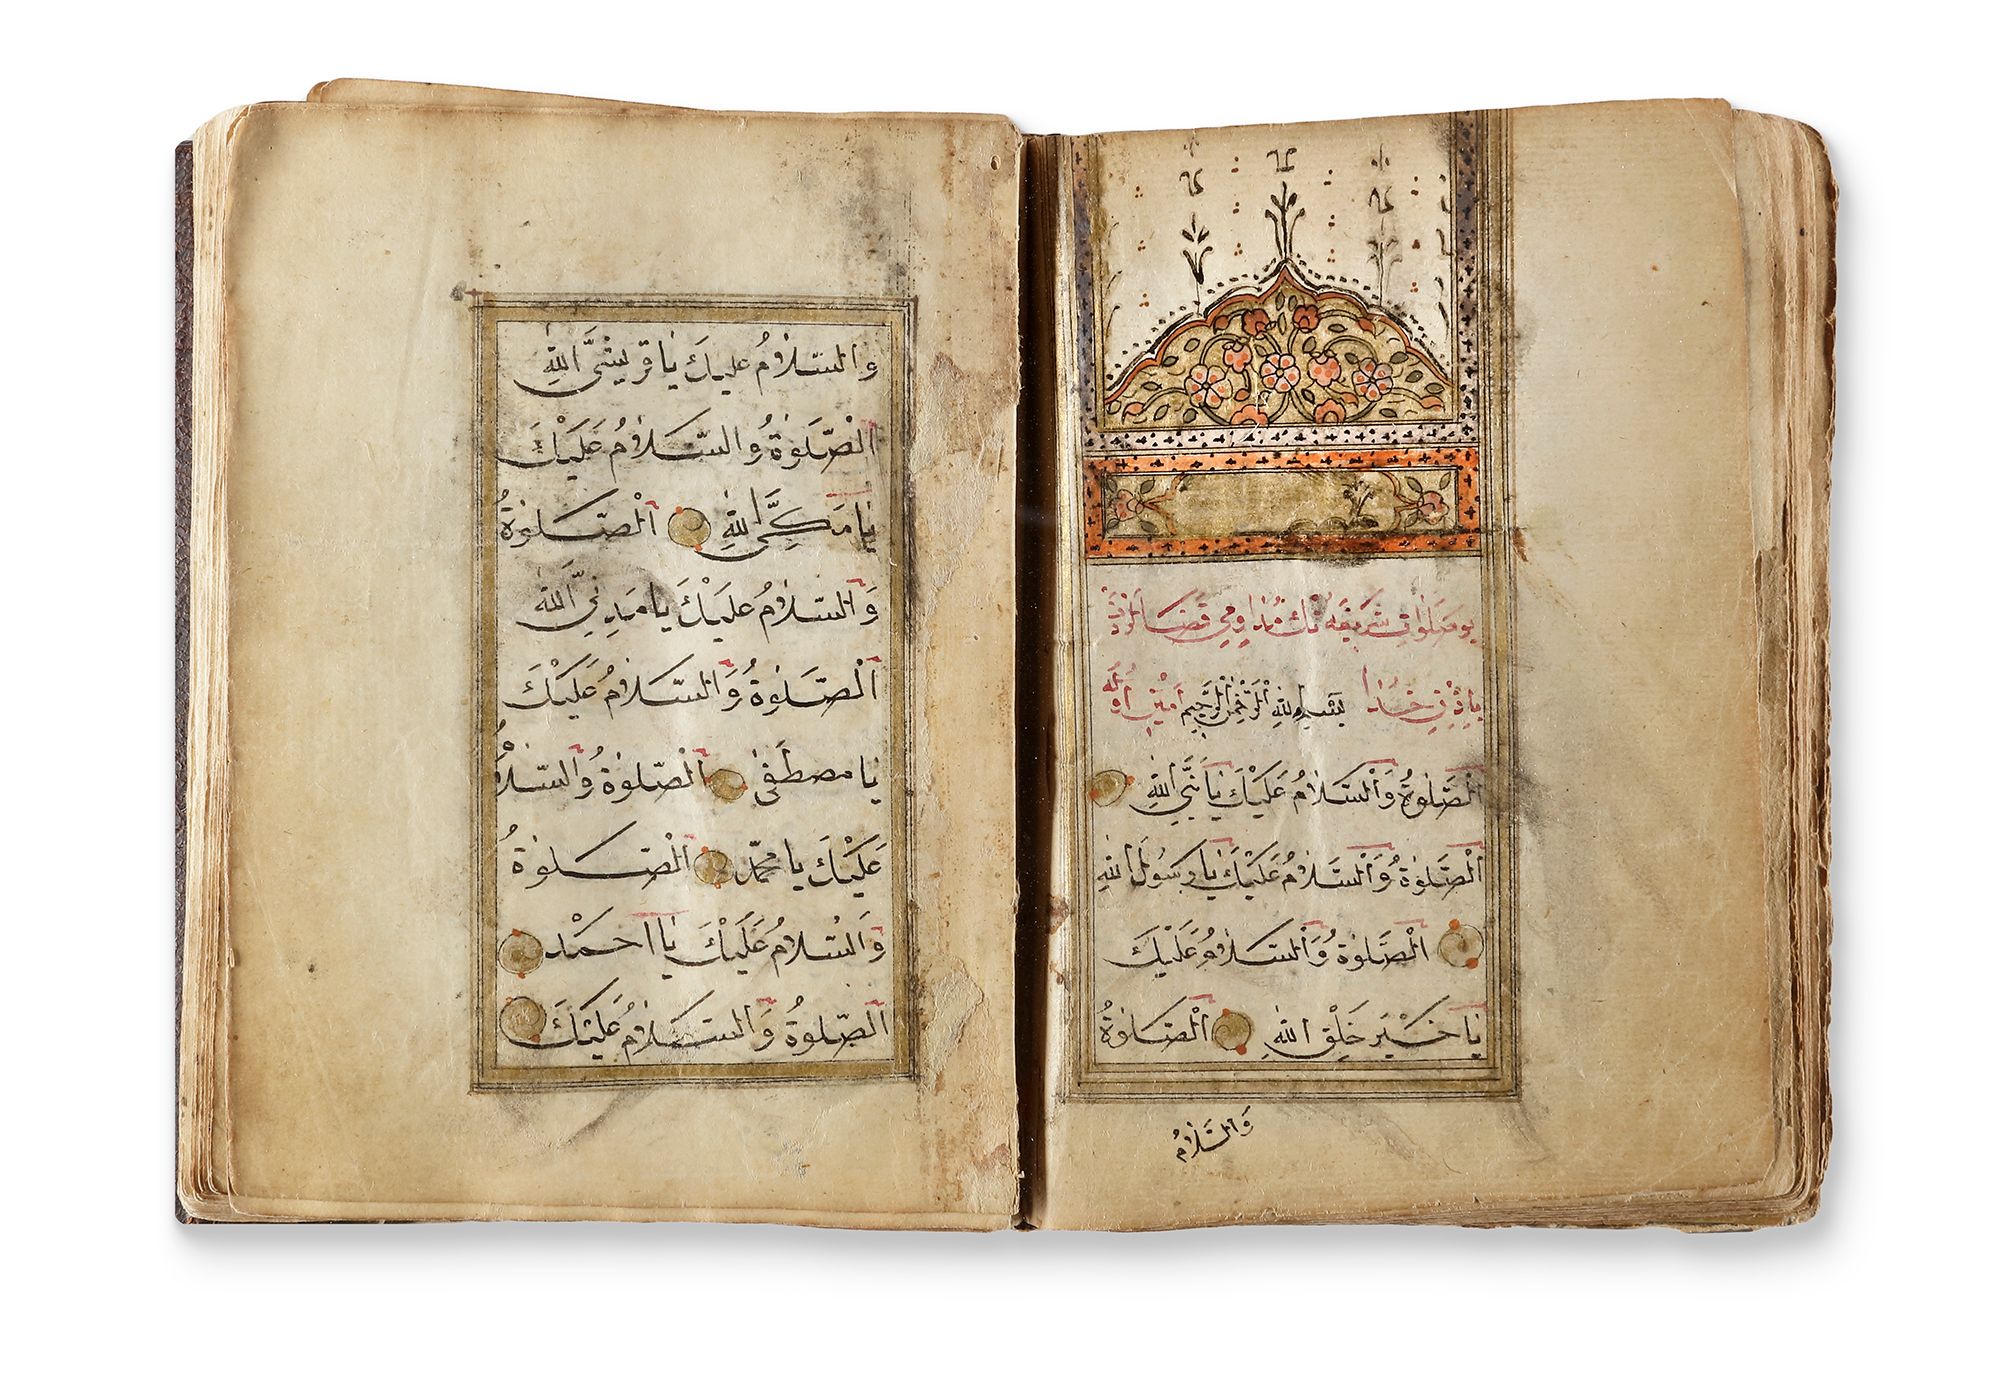 بو صلوات شريفه نك مداومى قضالردن
باذن خدا امين اوله بسم الله الرحمن الرحيم
اَلصَّلٰوةُ وَالسَّلَامُ عَلَيْكَ يَا نَبِىَّ اللهِ
اَلصَّلٰوةُ وَالسَّلَامُ عَلَيْكَ يَا رَسُولَ اللهِ
اَلصَّلٰوةُ وَالسَّلَامُ عَلَيْكَ
يَا خَيْرَ خَلْقِ اللهِ اَلصَّلٰوةُ
وَالسَّلَامُ
وَالسَّلَامُ عَلَيْكَ يَا قُرَيْشِىَّ اللهِ
اَلصَّلٰوةُ وَالسَّلَامُ عَلَيْكَ
يَا مَكِّىَّ اللهِ اَلصَّلٰوةُ
وَالسَّلَامُ عَلَيْكَ يَا مَدَنِىَّ اللهِ
اَلصَّلٰوةُ وَالسَّلَامُ عَلَيْكَ
يَا مُصْطَفٰى اَلصَّلٰوةُ وَالسَّلَامُ
عَلَيْكَ يَا مُحَمَّد اَلصَّلٰوةُ
وَالسَّلَامُ عَلَيْكَ يَا اَحْمَد
اَلصَّلٰوةُ وَالسَّلَامُ عَلَيْكَ